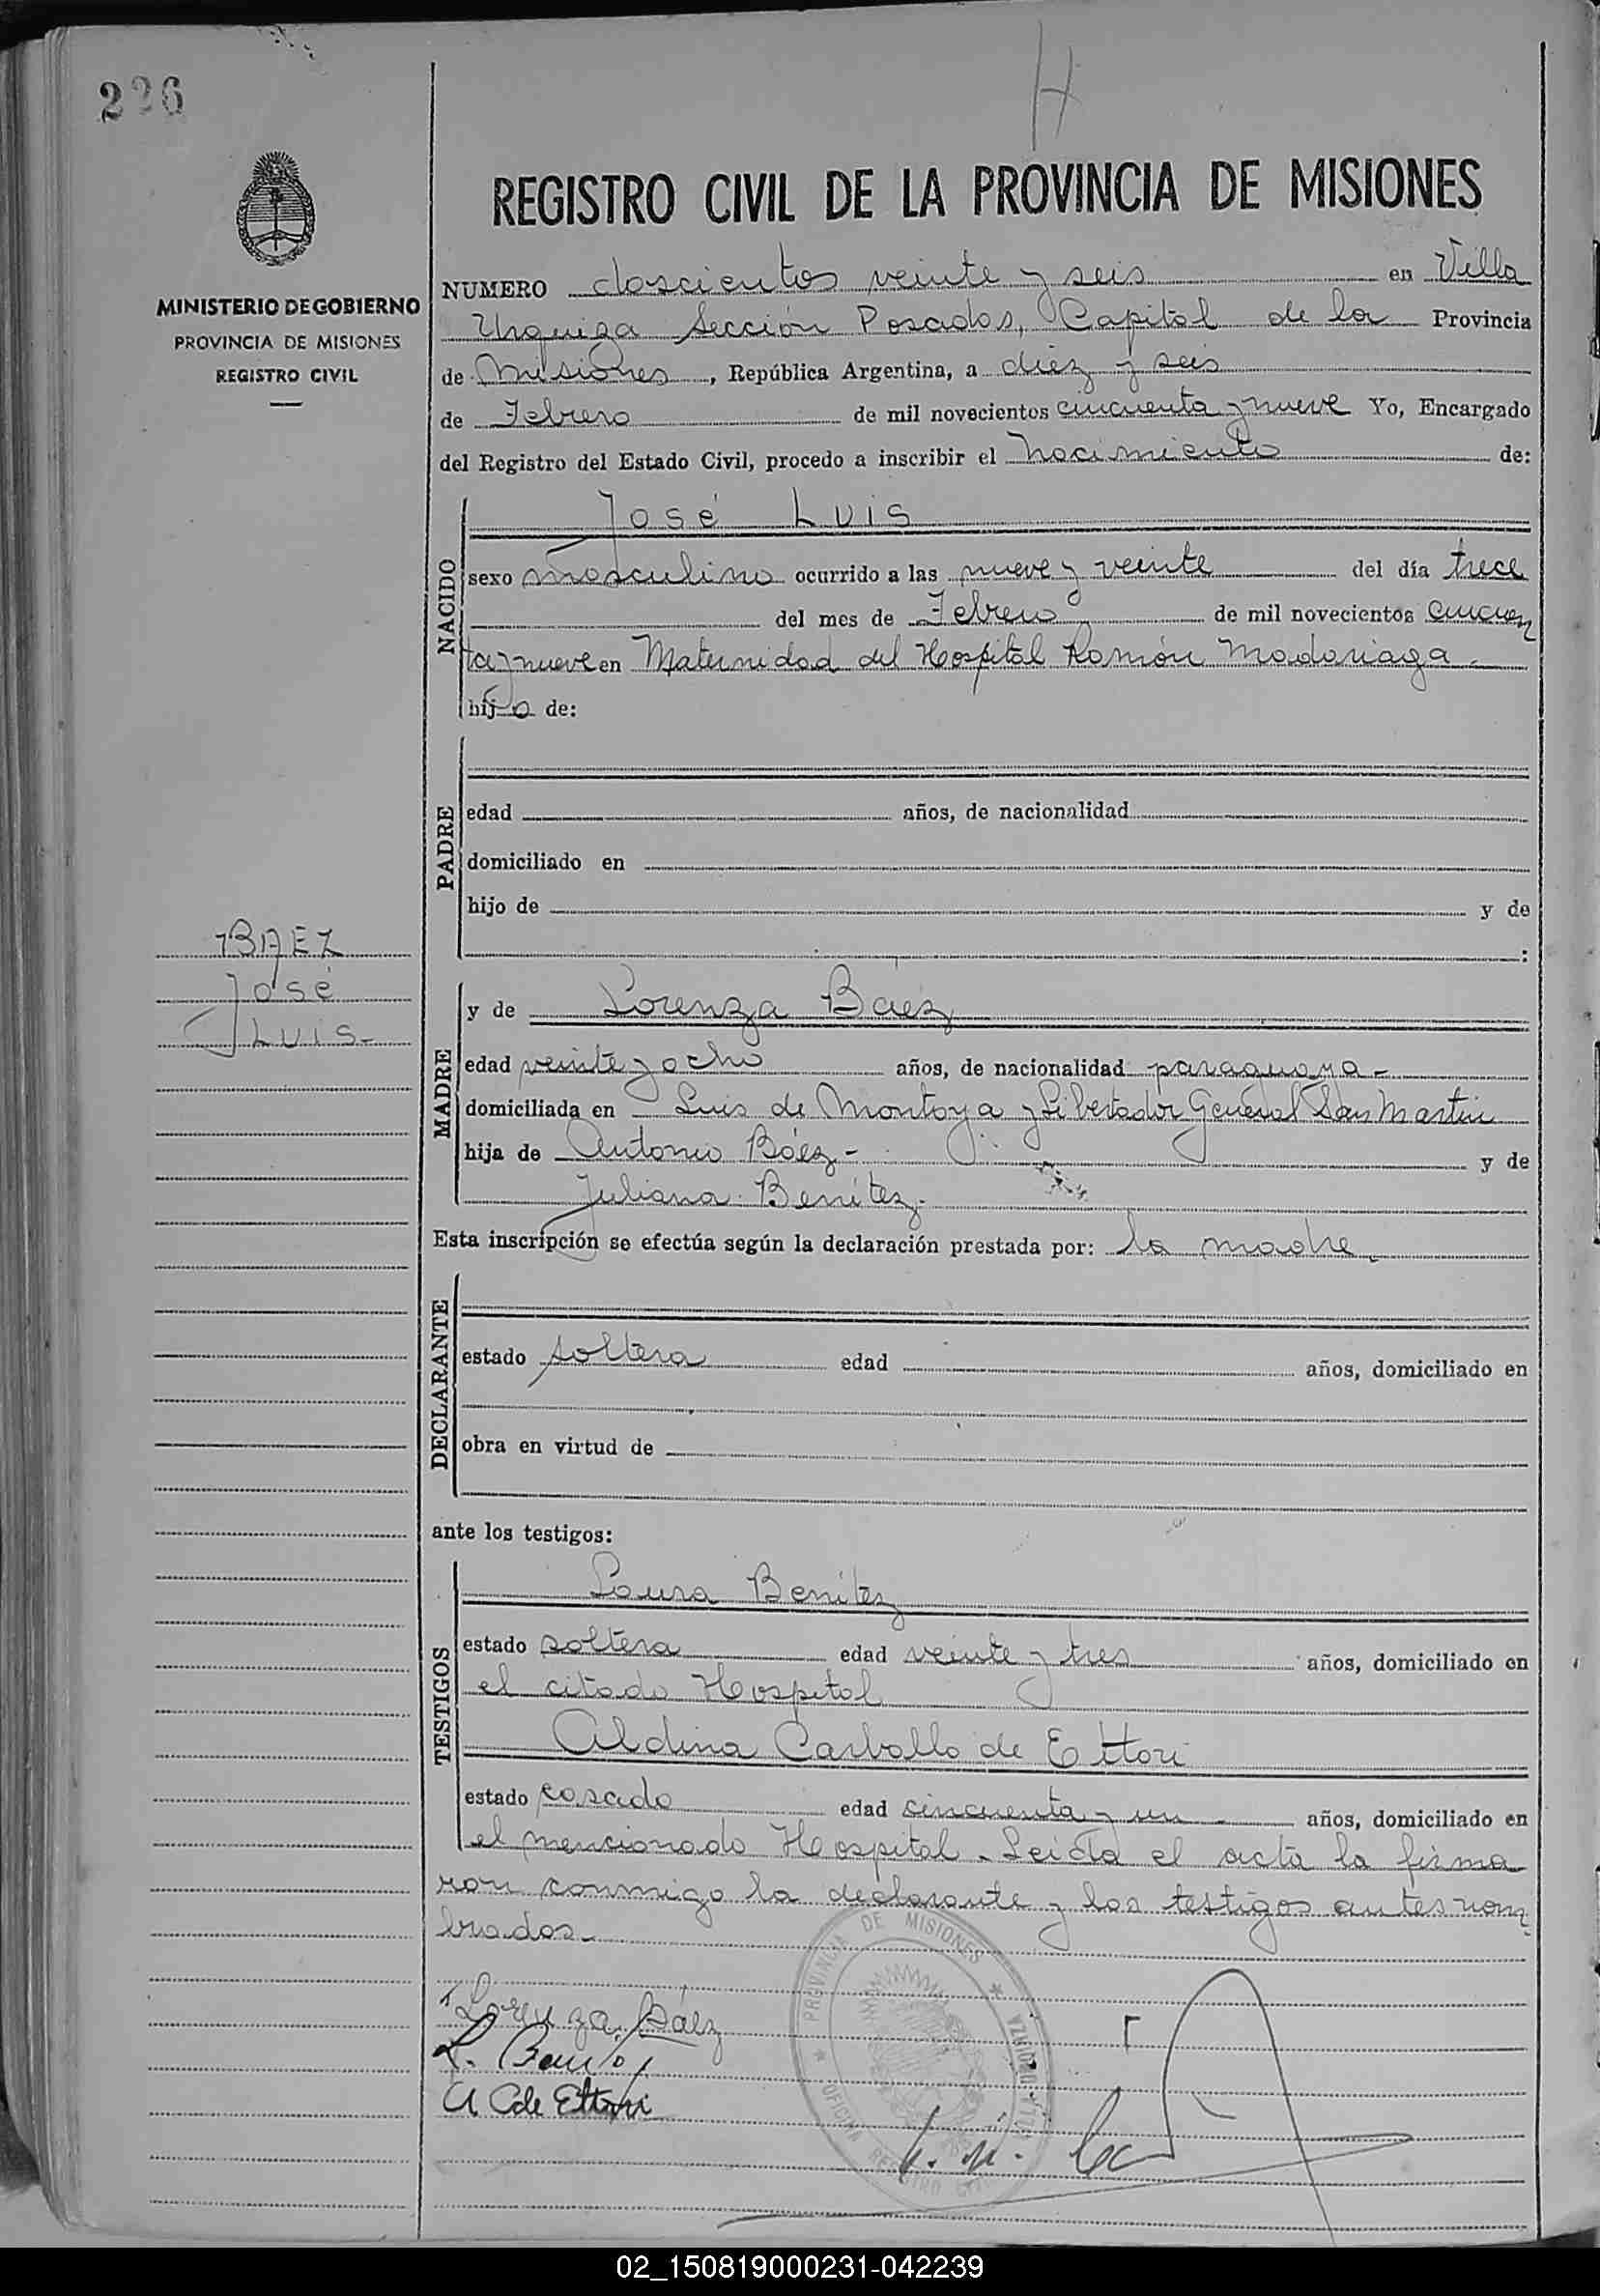 226
H
MINISTERIO DE GOBIERNO
PROVINCIA DE MISIONES
REGISTRO CIVIL
REGISTRO CIVIL DE LA PROVINCIA DE MISIONES
NUMERO doscientos veinte y seis en Villa
Urquiza Sección Posadas, Capital de la Provincia
de Misiones, República Argentina, a diez y seis
de Febrero de mil novecientos cincuenta y nueve Yo, Encargado
del Registro del Estado Civil, procedo a inscribir el nacimiento de:
NACIDO
José Luis
sexo masculino ocurrido a las nueve y veinte del día trece
del mes de Febrero de mil novecientos cincuen
ta y nueve en Maternidad del Hospital Ramón Madariaga.
hijo de:
PADRE
edad años, de nacionalidad
domiciliado en
hijo de y de
:
BAEZ
José
LUIS-
MADRE
y de Lorenza Báez
edad veinte y ocho años, de nacionalidad paraguaya-
domiciliada en Luis de Montoya y Libertador General San Martin
hija de Antonio Báez- y de
Juliana Benítez.
Esta inscripción se efectúa según la declaración prestada por: la madre.
DECLARANTE
estado soltera edad años, domiciliado en
obra en virtud de
ante los testigos:
TESTIGOS
Laura Benítez
estado soltera edad veinte y tres años, domiciliado en
el citado Hospital
Aldina Carballo de Ettori
estado casada edad cincuenta y un años, domiciliado en
el mencionado Hospital. Leída el acta la firma
ron conmigo la declarante y los testigos antes nom
brados.-
Lorenza Báez
A C de Ettori
PROVINCIA DE MISIONES
02_150819000231-042239